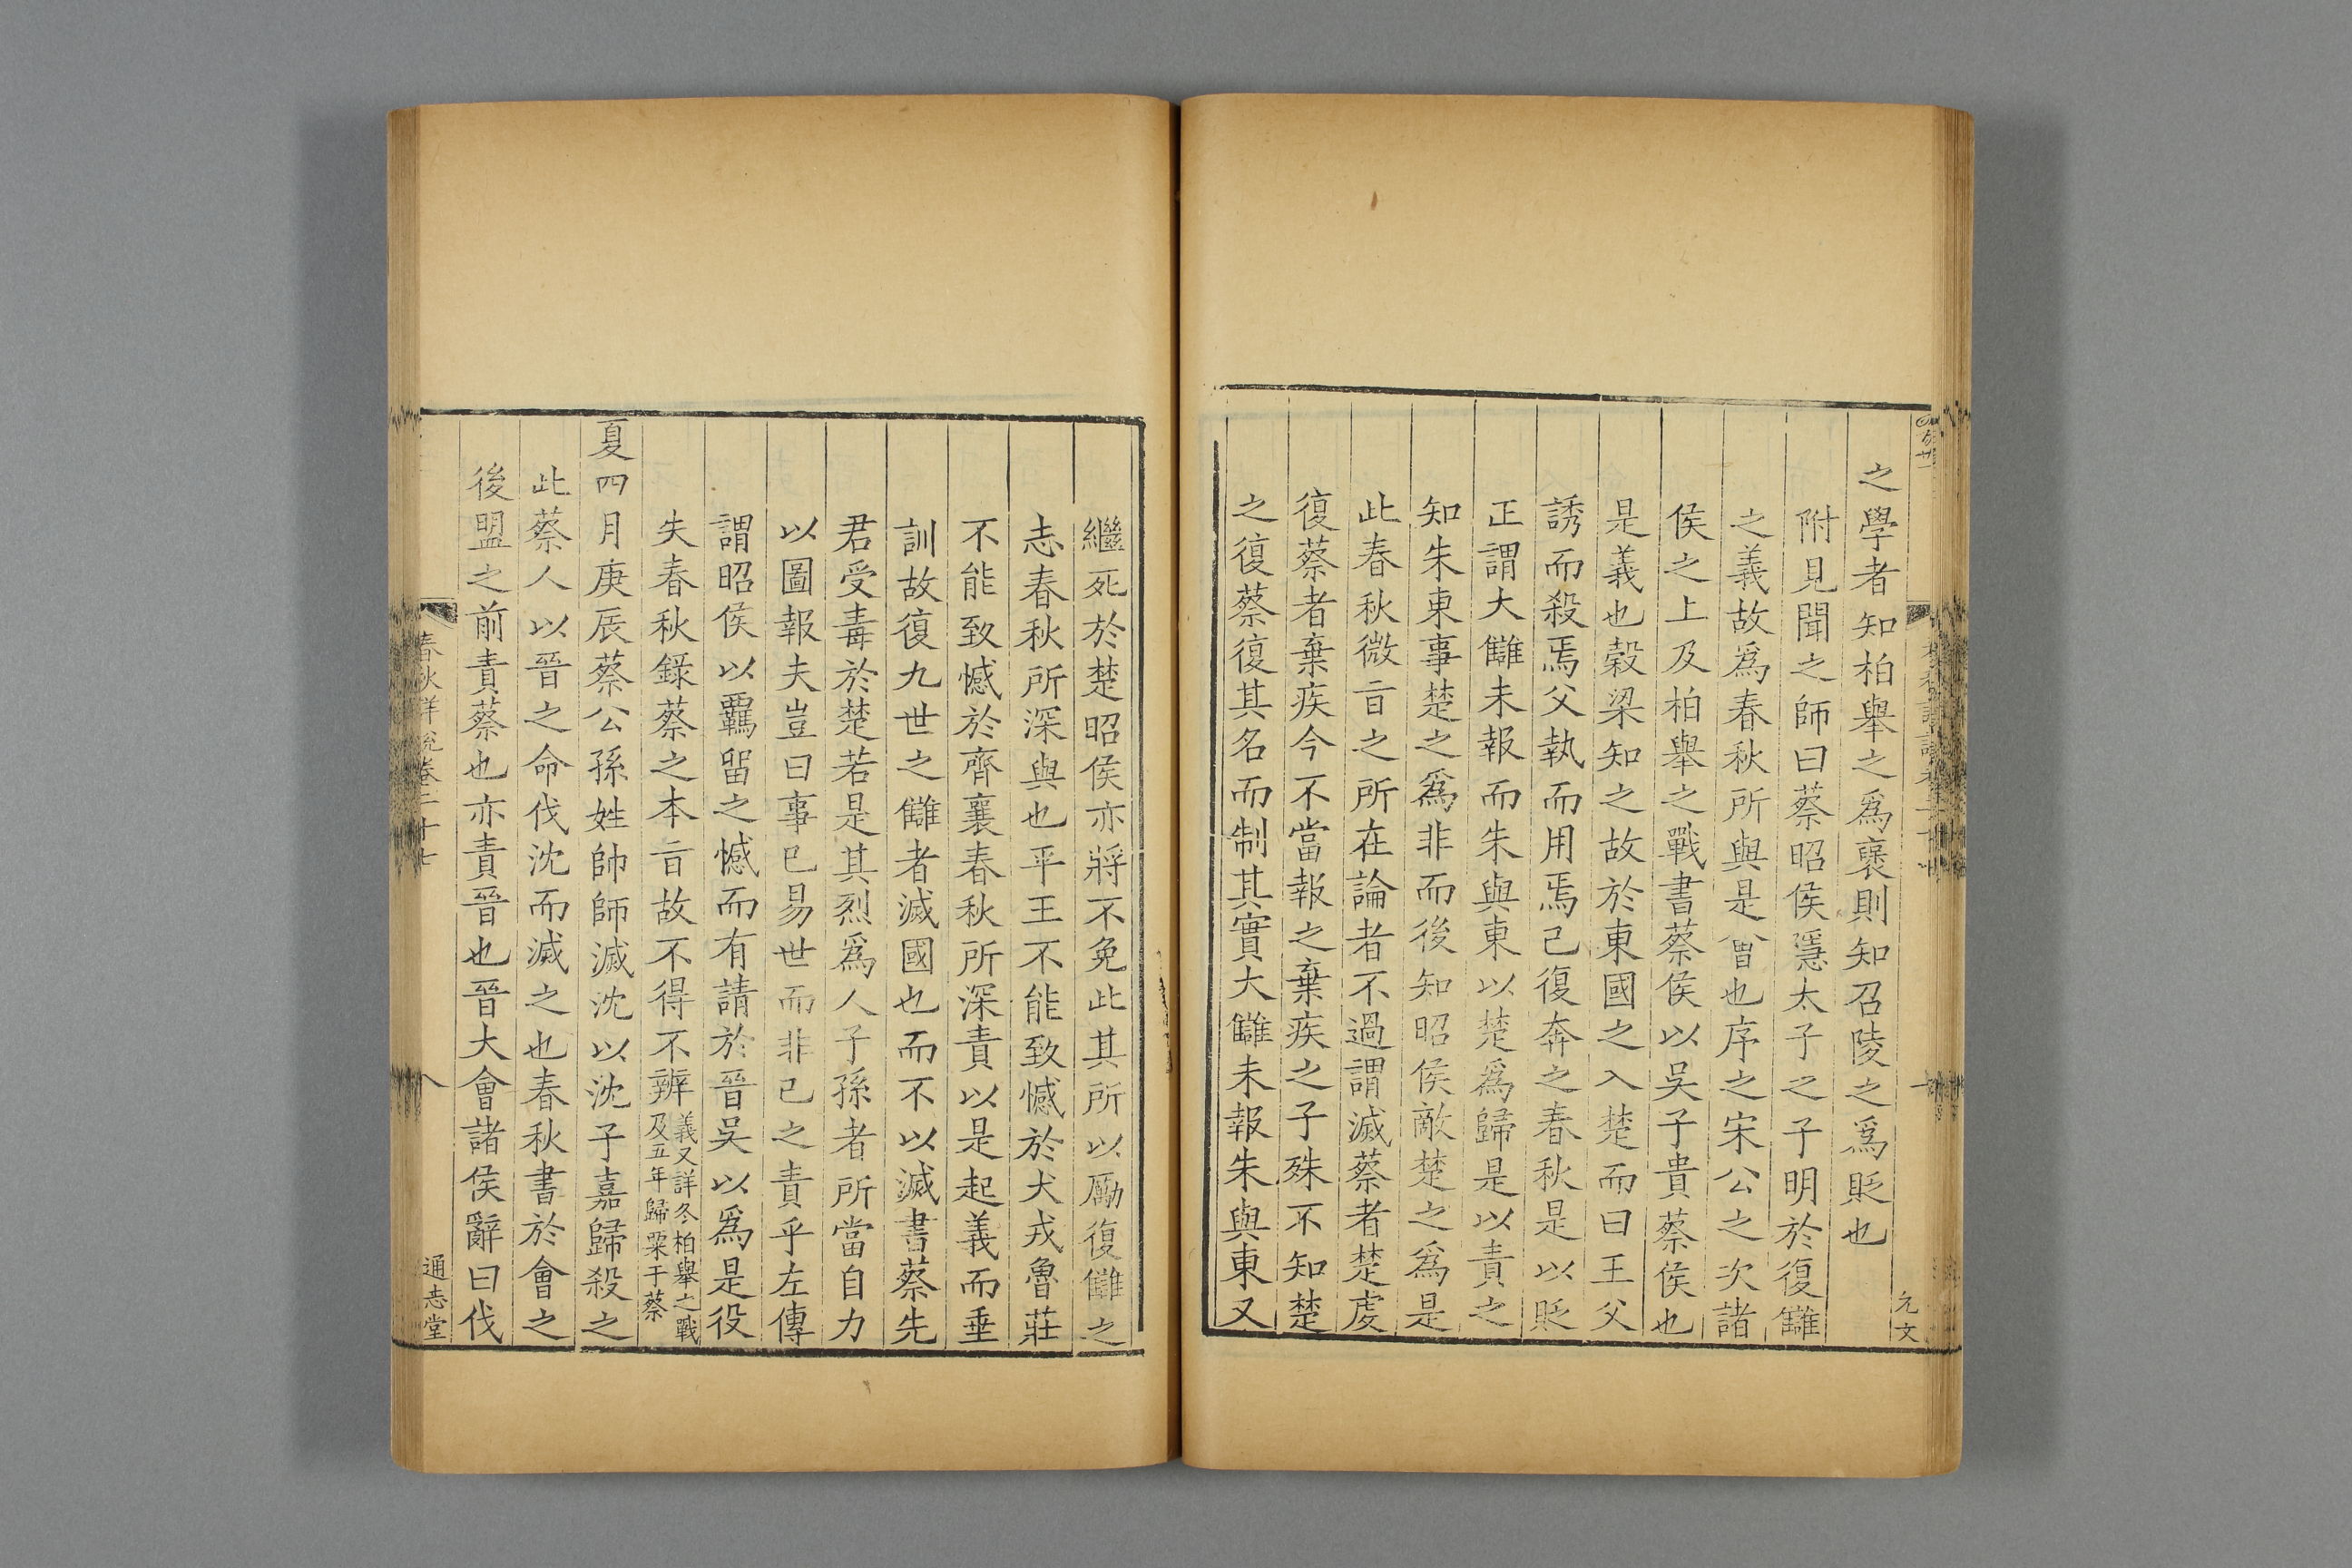 之學者知柏舉之爲襃則知召陵之爲貶也
附見聞之師曰蔡昭侯隱太子之子明於復讎
之義故爲春秋所與是會也序之宋公之次諸
侯之上及柏舉之戰書蔡侯以吳子貴蔡侯也
是義也穀梁知之故於東國之入楚而曰王父
誘而殺焉父執而用焉己復奔之春秋是以貶
正謂大讎未報而朱與東以楚爲歸是以責之
知朱東事楚之爲非而後知昭侯敵楚之爲是
此春秋微㫖之所在論者不過謂滅蔡者楚虔
復蔡者棄疾今不當報之棄疾之子殊不知楚
之復蔡復其名而制其實大讎未報朱與東又
元文
繼死於楚昭侯亦將不免此其所以勵復讎之
志春秋所深與也平王不能致憾於犬戎魯莊
不能致憾於齊襄春秋所深責以是起義而垂
訓故復九世之讎者滅國也而不以滅書蔡先
君受毒於楚若是其烈爲人子孫者所當自力
以圖報夫豈曰事已易世而非已之責乎左傳
謂昭侯以羈留之憾而有請於晉吳以爲是役
失春秋錄蔡之本㫖故不得不辨義又詳冬柏舉之戰
及五年歸粟于蔡
夏四月庚辰蔡公孫姓帥師滅沈以沈子嘉歸殺之
此蔡人以晉之命伐沈而滅之也春秋書於會之
後盟之前責蔡也亦責晉也晉大會諸侯辭曰伐
春秋詳說卷二十七
八
通志堂